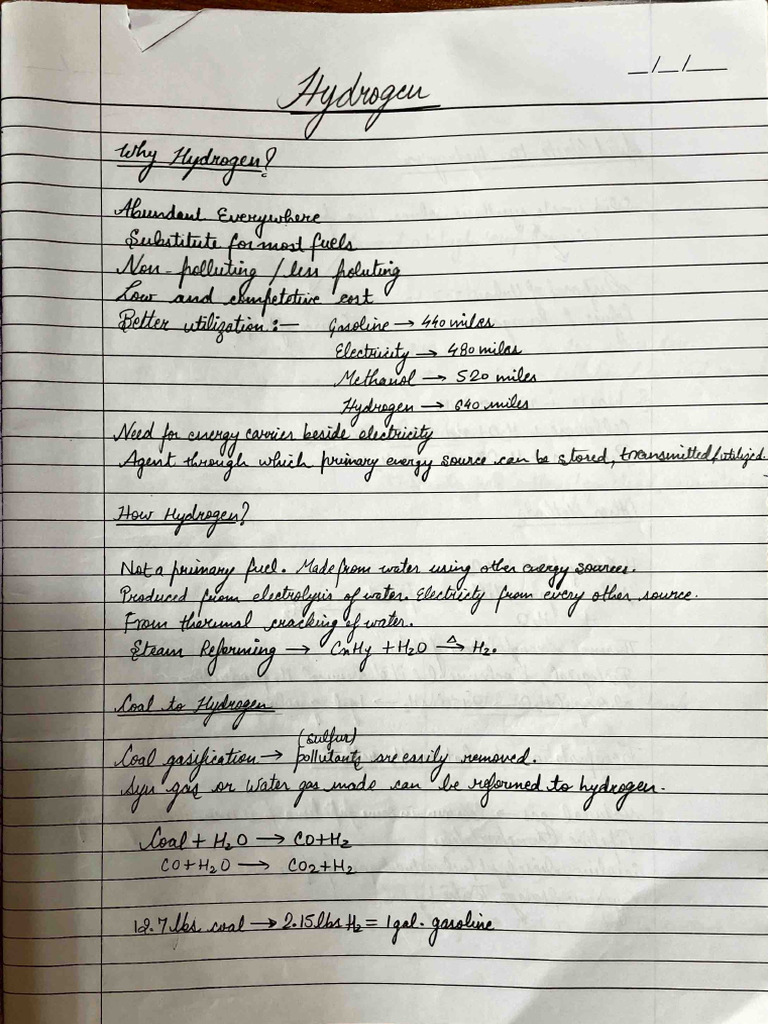 _/_/___
Hydrogen
Why Hydrogen?
Abundant Everywhere
Substitute for most fuels
Non-polluting / less poluting
Low and competetive cost
Better utilization :- Gasoline → 440 miles
Electricity → 480 miles
Methanol → 520 miles
Hydrogen → 640 miles
Need for energy carries beside electricity
Agent through which primary energy source can be stored, transmitted/utilized.
How Hydrogen?
Not a primary fuel. Made from water using other energy sources.
Produced from electrolysis of water. Electricity from every other source.
From thermal cracking of water.
Steam Reforming → CnHy + H2O →Δ H2.
Coal to Hydrogen
(sulfur)
Coal gasification → pollutants are easily removed.
Syn gas or Water gas made can be reformed to hydrogen.
Coal + H2O → CO + H2
CO + H2O → CO2 + H2
12.7 lbs coal → 2.15 lbs H2 = 1 gal. gasoline